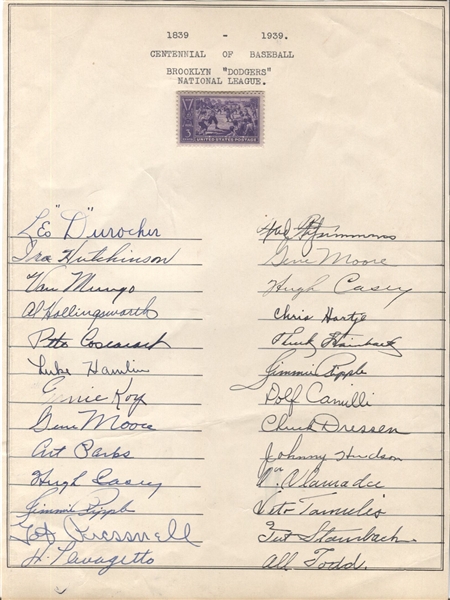 1839 - 1939.
CENTENNIAL OF BASEBALL
BROOKLYN "DODGERS"
NATIONAL LEAGUE.
3
UNITED STATES POSTAGE
Leo "D"urocher
Ira Hutchinson
Van Mungo
Al Hollingsworth
Pete Coscarart
Luke Hamlin
Ernie Koy
Gene Moore
Art Parks
Hugh Casey
Jimmie Ripple
Tot Pressnell
H. Lavagetto
Gene Moore
Hugh Casey
Chris Hartje
Jimmie Ripple
Dolf Camilli
Chuck Dressen
Johnny Hudson
Vito Tamulis
Tut Stainback
Al Todd.